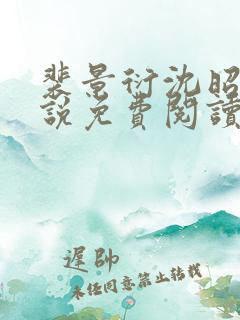 裴景衍沈昭
說免費閱讀
遲帥
未經同意禁止轉載